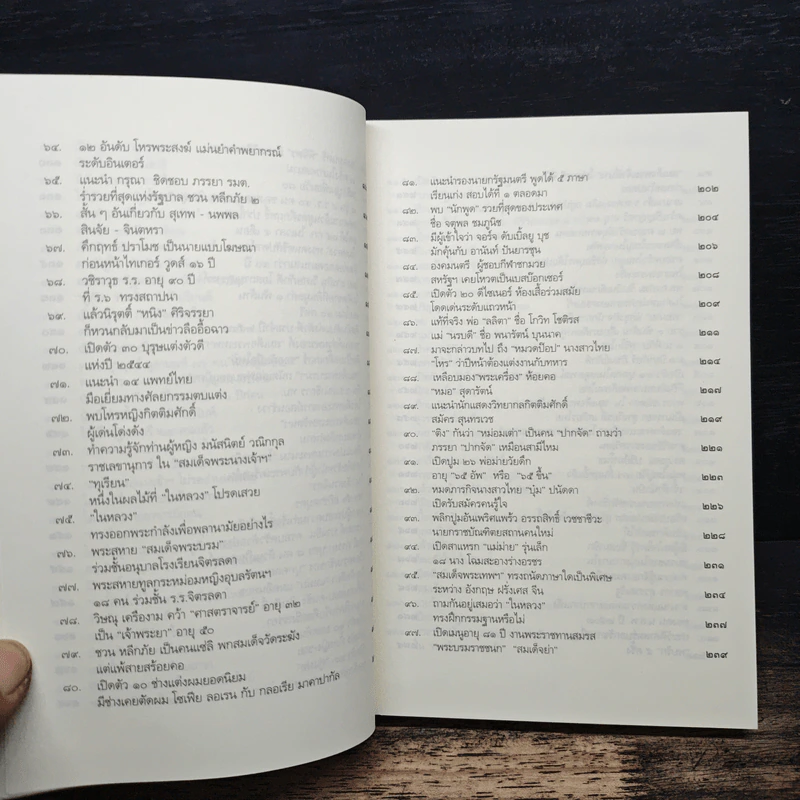 ๖๔. ๑๒ อันดับ โหรพระสงฆ์ แม่นยำคำพยากรณ์
ระดับอินเตอร์
๖๕. แนะนำ กรุณา ชิดชอบ ภรรยา รมต.
ร่ำรวยที่สุดแห่งรัฐบาล ชวน หลีกภัย ๒
๖๖. สั้น ๆ อันเกี่ยวกับ สุเทพ - นพพล
สินจัย - จินตหรา
๖๗. คึกฤทธิ์ ปราโมช เป็นนายแบบโฆษณา
ก่อนหน้าไทเกอร์ วูดส์ ๑๖ ปี
๖๘. วชิราวุธ ร.ร. อายุ ๙๐ ปี
ที่ ร.๖ ทรงสถาปนา
๖๙. แล้วนิรุตติ์ "หนิง" ศิริจรรยา
ก็หวนกลับมาเป็นข่าวลืออื้อฉาว
๗๐. เปิดตัว ๓๐ บุรุษแต่งตัวดี
แห่งปี ๒๕๔๔
๗๑. แนะนำ ๑๔ แพทย์ไทย
มือเยี่ยมทางศัลยกรรมตบแต่ง
๗๒. พบโหรหญิงกิตติมศักดิ์
ผู้เด่นโด่งดัง
๗๓. ทำความรู้จักท่านผู้หญิง มนัสนิตย์ วณิกกุล
ราชเลขานุการ ใน "สมเด็จพระนางเจ้าฯ"
๗๔. "ทุเรียน"
หนึ่งในผลไม้ที่ "ในหลวง" โปรดเสวย
๗๕. "ในหลวง"
ทรงออกพระกำลังเพื่อพลานามัยอย่างไร
๗๖. พระสหาย "สมเด็จพระบรม"
ร่วมชั้นอนุบาลโรงเรียนจิตรลดา
๗๗. พระสหายทูลกระหม่อมหญิงอุบลรัตนฯ
๑๘ คน ร่วมชั้น ร.ร.จิตรลดา
๗๘. วิษณุ เครืองาม คว้า "ศาสตราจารย์" อายุ ๓๒
เป็น "เจ้าพระยา" อายุ ๕๐
๗๙. ชวน หลีกภัย เป็นคนแซ่ลิ พกสมเด็จวัดระฆัง
แต่แพ้สายสร้อยคอ
๘๐. เปิดตัว ๑๐ ช่างแต่งผมยอดนิยม
มีช่างเคยตัดผม โซเฟีย ลอเรน กับ กลอเรีย มาคาปากัล
๘๑. แนะนำรองนายกรัฐมนตรี พูดได้ ๕ ภาษา
เรียนเก่ง สอบได้ที่ ๑ ตลอดมา ๒๐๒
๘๒. พบ "นักพูด" รวยที่สุดของประเทศ
ชื่อ จตุพล ชมภูนิช ๒๐๔
๘๓. มีผู้เข้าใจว่า จอร์จ ดับเบิ้ลยู บุช
มักคุ้นกับ อานันท์ ปันยารชุน ๒๐๖
๘๔. องคมนตรี ผู้ชอบกีฬาชกมวย
สหรัฐฯ เคยโหวตเป็นเบสบ๊อกเซอร์ ๒๐๘
๘๕. เปิดตัว ๒๐ ดีไซเนอร์ ห้องเสื้อร่วมสมัย
โดดเด่นระดับแถวหน้า ๒๐๙
๘๖. แท้ที่จริง พ่อ "ลลิตา" ชื่อ โกวิท โชติรส
แม่ "นรบดี" ชื่อ พนารัตน์ บุนนาค ๒๑๑
๘๗. มาจะกล่าวบทไป ถึง "หมวดป๊อป" นางสาวไทย
"โหร" ว่าปีหน้าต้องแต่งงานกับทหาร ๒๑๔
๘๘. เหลือบมอง "พระเครื่อง" ห้อยคอ
"หมอ" สุดารัตน์ ๒๑๗
๘๙. แนะนำนักแสดงวิทยากลกิตติมศักดิ์
สมัคร สุนทรเวช ๒๑๙
๙๐. "ติง" กันว่า "หม่อมเต่า" เป็นคน "ปากจัด" ถามว่า
ภรรยา "ปากจัด" เหมือนสามีไหม ๒๒๑
๙๑. เปิดปูม ๒๖ พ่อม่ายวัยดึก
อายุ "๖๕ อัพ" หรือ "๖๕ ขึ้น" ๒๒๓
๙๒. หมดภารกิจนางสาวไทย "บุ๋ม" ปนัดดา
เปิดรับสมัครคนรู้ใจ ๒๒๖
๙๓. พลิกปูมอันเพริศแพร้ว อรรถสิทธิ์ เวชชาชีวะ
นายกราชบัณฑิตยสถานคนใหม่ ๒๒๘
๙๔. เปิดสาแหรก "แม่ม่าย" รุ่นเล็ก
๑๘ นาง โฉมสะอางร่างอรชร ๒๓๑
๙๕. "สมเด็จพระเทพฯ" ทรงถนัดภาษาใดเป็นพิเศษ
ระหว่าง อังกฤษ ฝรั่งเศส จีน ๒๓๔
๙๖. ถามกันอยู่เสมอว่า "ในหลวง"
ทรงฝึกกรรมฐานหรือไม่ ๒๓๗
๙๗. เปิดเมนูอายุ ๘๑ ปี งานพระราชทานสมรส
"พระบรมราชชนก" "สมเด็จย่า" ๒๓๙